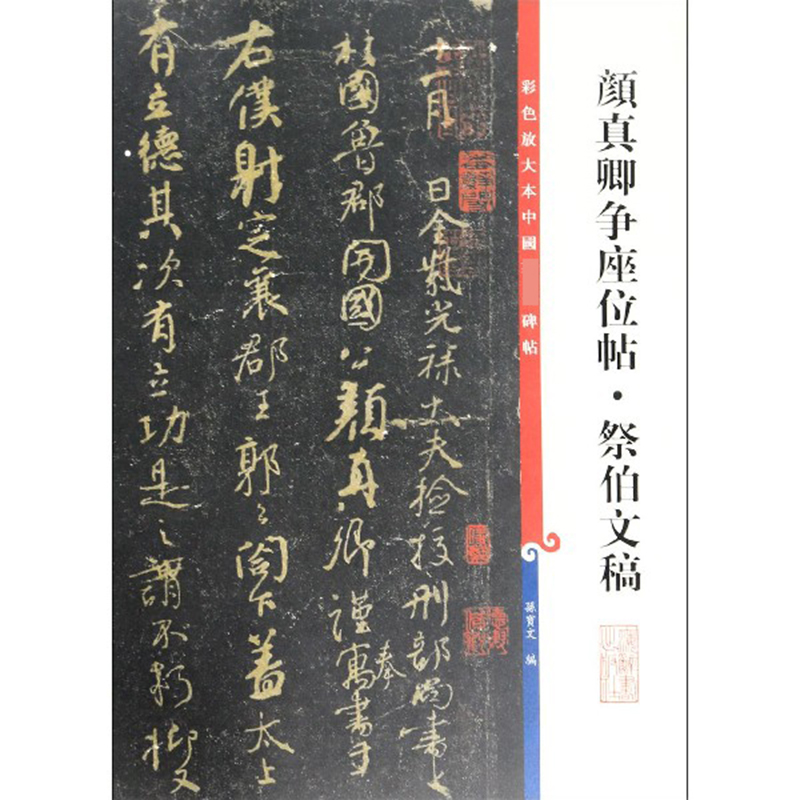 顏真卿争座位帖·祭伯文稿
彩色放大本中國 碑帖
孫寶文 編
十一月 日金紫光祿大夫檢校刑部尚書上
柱國魯郡開國公顏真卿謹奉寓書于
右僕射定襄郡王郭公閤下蓋太上
有立德其次有立功是之謂不朽抑又